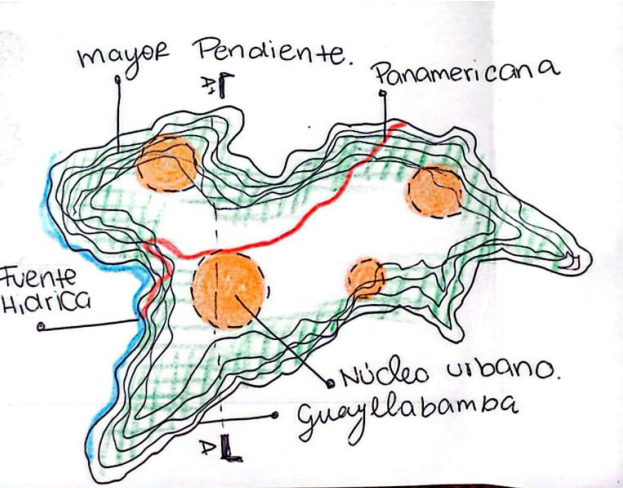 mayor Pendiente.
Panamericana
Fuente
Hídrica
Núcleo urbano.
Guayllabamba